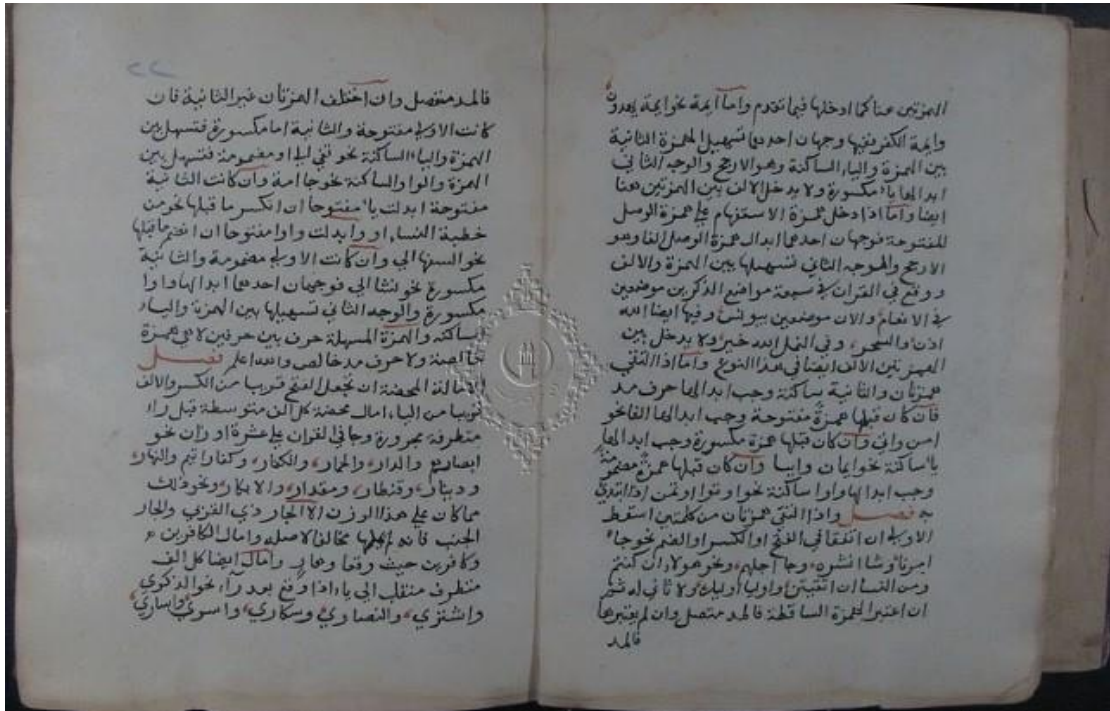 الهمزتين هنا كما ادخلها فيما تقدم واما ايمة نحو ايمة يهدون
وايمة الكفر ففيها وجهان احدهما تسهيل الهمزة الثانية
بين الهمزة والياء الساكنة وهو الارجح والوجه الثاني
ابدالها ياء مكسورة ولا يدخل الالف بين الهمزتين هنا
ايضا واما اذا دخل همزة الاستفهام على همزة الوصل
المفتوحة فوجهان احدهما ابدال همزة الوصل الفا وهو
الارجح والوجه الثاني تسهيلها بين الهمزة والالف
ووقع في القران في سبعة مواضع الذكرين موضعين
في الانعام والان موضعين بيونس وفيها ايضا الله
اذن والسحر وفي النمل الله خير ولا يدخل بين
الهمزتين الالف ايضا في هذا النوع واما اذا التقى
همزتان والثانية ساكنة وجب ابدالها حرف مد
فان كان قبلها همزة مفتوحة وجب ابدالها الفا نحو
امن واتى وان كان قبلها همزة مكسورة وجب ابدالها
ياء ساكنة نحو ايمان وايتا وان كان قبلها همزة مضمومة
وجب ابدالها واوا ساكنة نحو اوتوا اوتمن اذا ابتدي
به فصل واذا التقى همزتان من كلمتين اسقط
الاولى ان اتفقا في الفتح او الكسر او الضم نحو جاء
امرنا وشا انشره وجا اجلهم ونحو هولا ان كنتم
ومن النسا ان اتقيتن واوليا اوليك ولا ثاني له ثم
ان اعتبر الهمزة الساقطة فالمد متصل وان لم يعتبرها
فالمد
فالمد منفصل وان اختلف الهمزتان غير الثانية فان
كانت الاولى مفتوحة والثانية اما مكسورة فتسهل بين
الهمزة والياء الساكنة نحو تفي الى او مضمومة فتسهل بين
الهمزة والواو الساكنة نحو جا امة وان كانت الثانية
مفتوحة ابدلت ياء مفتوحا ان انكسر ما قبلها نحو من
خطبة النساء او وابدلت واوا مفتوحا ان انضم ما قبلها
نحو السفها الى وان كانت الاولى مضمومة والثانية
مكسورة نحو نشا الى فوجهان احدهما ابدالها واوا
مكسورة والوجه الثاني تسهيلها بين الهمزة والياء
الساكنة والهمزة المسهلة حرف بين حرفين لا هي همزة
خالصة ولا حرف مد خالص والله اعلم فصل
الامالة المحضة ان تجعل الفتح قريبا من الكسر والالف
قريبا من الياء امال محضة كل الف متوسطة قبل راء
متطرفة مجرورة وجا في القران على عشرة اوزان نحو
ابصارهم والدار والحمار والكفار وكفار اثيم والنهار
ودينار وقنطار ومقدار والابكار ونحو ذلك
مما كان على هذا الوزن الا الجار ذي القربى والجار
الجنب فانه لم يملها مخالفا لاصله وامال الكافرين
وكافرين حيث وقعا وامال ايضا كل الف
متطرف منقلب الى ياء اذا وقع بعد راء نحو الذكري
واشترى والنصارى وسكارى واسرى واسارى